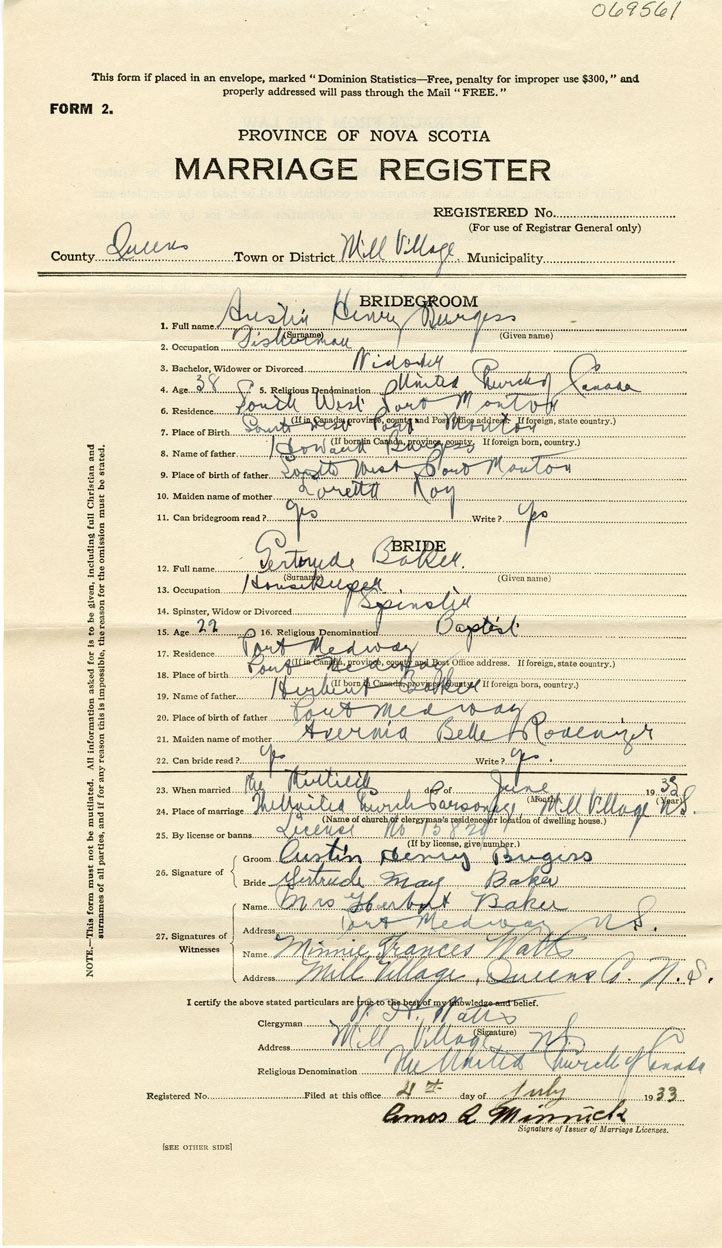 069561
This form if placed in an envelope, marked "Dominion Statistics—Free, penalty for improper use $300," and
properly addressed will pass through the Mail "FREE."
FORM 2.
PROVINCE OF NOVA SCOTIA
MARRIAGE REGISTER
REGISTERED No.
(For use of Registrar General only)
County Queens Town or District Mill Village Municipality
BRIDEGROOM
1. Full name Austin Henry Burgess
(Surname) (Given name)
2. Occupation Fisherman
3. Bachelor, Widower or Divorced Widower
4. Age 38 5. Religious Denomination United Church of Canada
6. Residence South West Port Mouton
(If in Canada, province, county and Post Office address. If foreign, state country.)
7. Place of Birth South West Port Mouton
(If born in Canada, province, county. If foreign born, country.)
8. Name of father Howard Burgess
9. Place of birth of father South West Port Mouton
10. Maiden name of mother Loretta Roy
11. Can bridegroom read? Yes Write? Yes
BRIDE
12. Full name Gertrude Baker.
(Surname) (Given name)
13. Occupation Housekeeper
14. Spinster, Widow or Divorced Spinster
15. Age 22 16. Religious Denomination Baptist
17. Residence Port Medway
(If in Canada, province, county and Post Office address. If foreign, state country.)
18. Place of birth Port Medway
(If born in Canada, province, county. If foreign born, country.)
19. Name of father Herbert Baker
20. Place of birth of father Port Medway
21. Maiden name of mother Avernia Belle Rodenizer
22. Can bride read? Yes Write? Yes.
23. When married The thirtieth day of June 1933
(Month) (Year)
24. Place of marriage The United Church Parsonage, Mill Village N.S.
(Name of church or clergyman's residence or location of dwelling house.)
25. By license or banns License No 15820
(If by license, give number.)
26. Signature of
Groom Austin Henry Burgess
Bride Gertrude May Baker
27. Signatures of Witnesses
Name Mrs Herbert Baker
Address Port Medway N.S.
Name Minnie Frances Watts
Address Mill Village, Queens Co. N.S.
I certify the above stated particulars are true to the best of my knowledge and belief.
Clergyman Watts
(Signature)
Address Mill Village NS
Religious Denomination The United Church of Canada
Registered No. Filed at this office 4th day of July 1933
Amos Minnick
Signature of Issuer of Marriage Licenses.
[SEE OTHER SIDE]
NOTE.—This form must not be mutilated. All information asked for is to be given, including full Christian and
surnames of all parties, and if for any reason this is impossible, the reason for the omission must be stated.